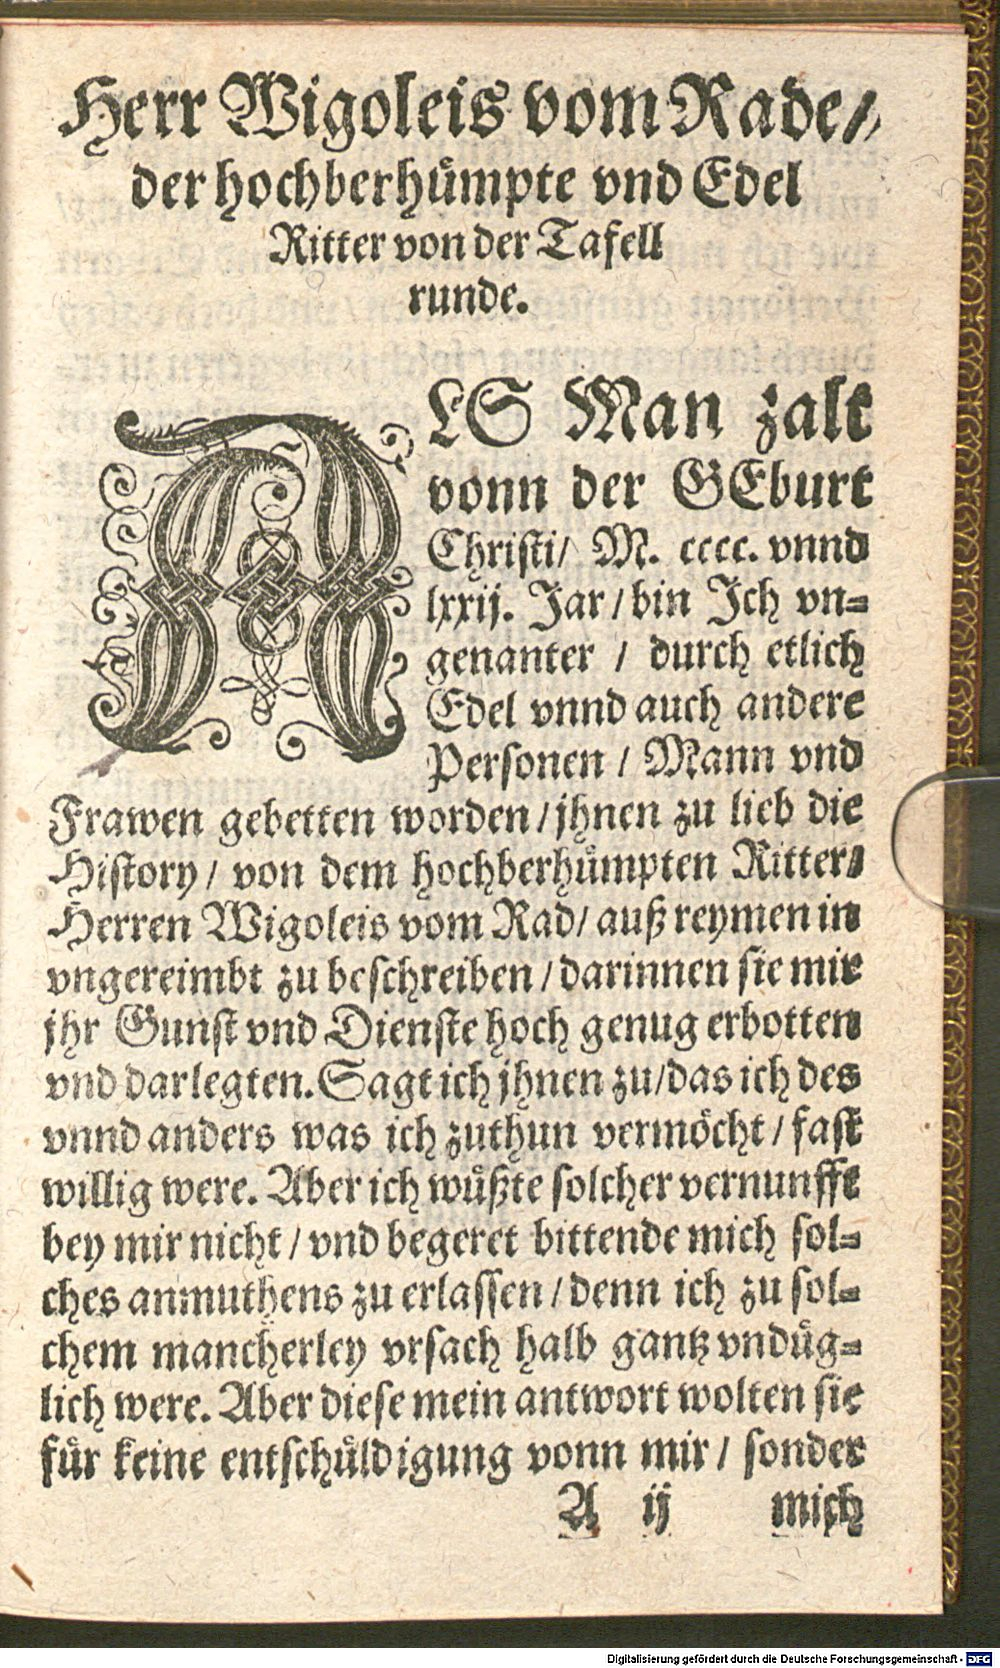 Herr Wigoleis vom Rade/
der hochberhuͤmpte vnd Edel
Ritter von der Tafell
runde.
ALS Man zalt
vonn der GEburt
Christi/ M. cccc. vnnd
lxxij. Jar/ bin Ich vn-
genanter / durch etlich
Edel vnnd auch andere
Personen / Mann vnd
Frawen gebetten worden/ jhnen zu lieb die
History/ von dem hochberhuͤmpten Ritter/
Herren Wigoleis vom Rad/ auß reymen in
vngereimbt zu beschreiben/ darinnen sie mir
jhr Gunst vnd Dienste hoch genug erbotten
vnd darlegten. Sagt ich jhnen zu/ das ich des
vnnd anders was ich zuthun vermoͤcht/ fast
willig were. Aber ich wuͤßte solcher vernunfft
bey mir nicht/ vnd begeret bittende mich sol-
ches anmuthens zu erlassen/ denn ich zu sol-
chem mancherley vrsach halb gantz vnduͤg-
lich were. Aber diese mein antwort wolten sie
fuͤr keine entschuͤldigung vonn mir/ sonder
A ij mich
Digitalisierung gefördert durch die Deutsche Forschungsgemeinschaft - DFG